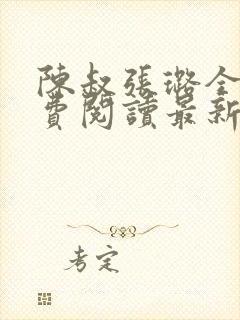 陳叔張璐全
費閱讀最新
考定